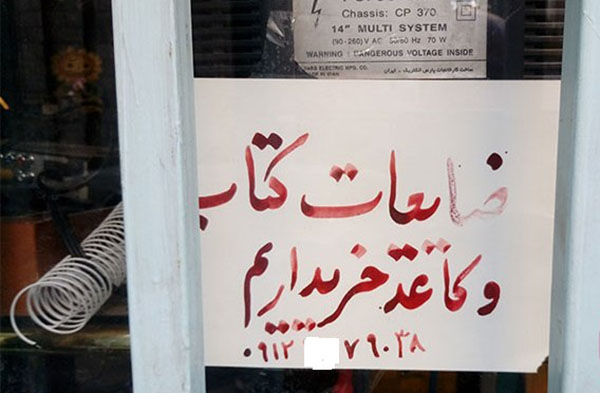 Chassis: CP 370
14" MULTI SYSTEM
(90-260) V AC 50/60 Hz 70 W
WARNING : DANGEROUS VOLTAGE INSIDE
PARS ELECTRIC MFG. CO.
MADE IN IRAN
ساخت کارخانجات پارس الکتریک - تهران
ضایعات کتاب
و کاغذ خریداریم
۰۹۱۲ ۷۶۰۳۸